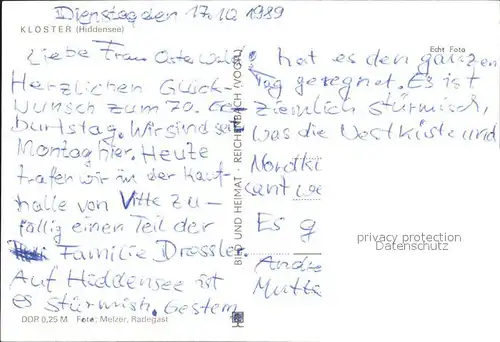 Dienstag den 17.10 1989
KLOSTER (Hiddensee)
Echt Foto
Liebe Frau Osterwald,
Herzlichen Glück-
wunsch zum 70. Ge-
burtstag. Wir sind seit
Montag hier. Heute
trafen wir in der Kauf-
halle von Vitte zu-
fällig einen Teil der
Familie Dressler.
Auf Hiddensee ist
es stürmish. Gestern
DDR 0,25 M Foto: Melzer, Radegast
BILD UND HEIMAT · REICHENBACH (VOGTL)
hat es den ganzen
Tag geregnet. Es ist
ziemlich stürmisch,
was die Westküste und
Nordkü
Es g
Andre
Mutte
privacy protection
Datenschutz